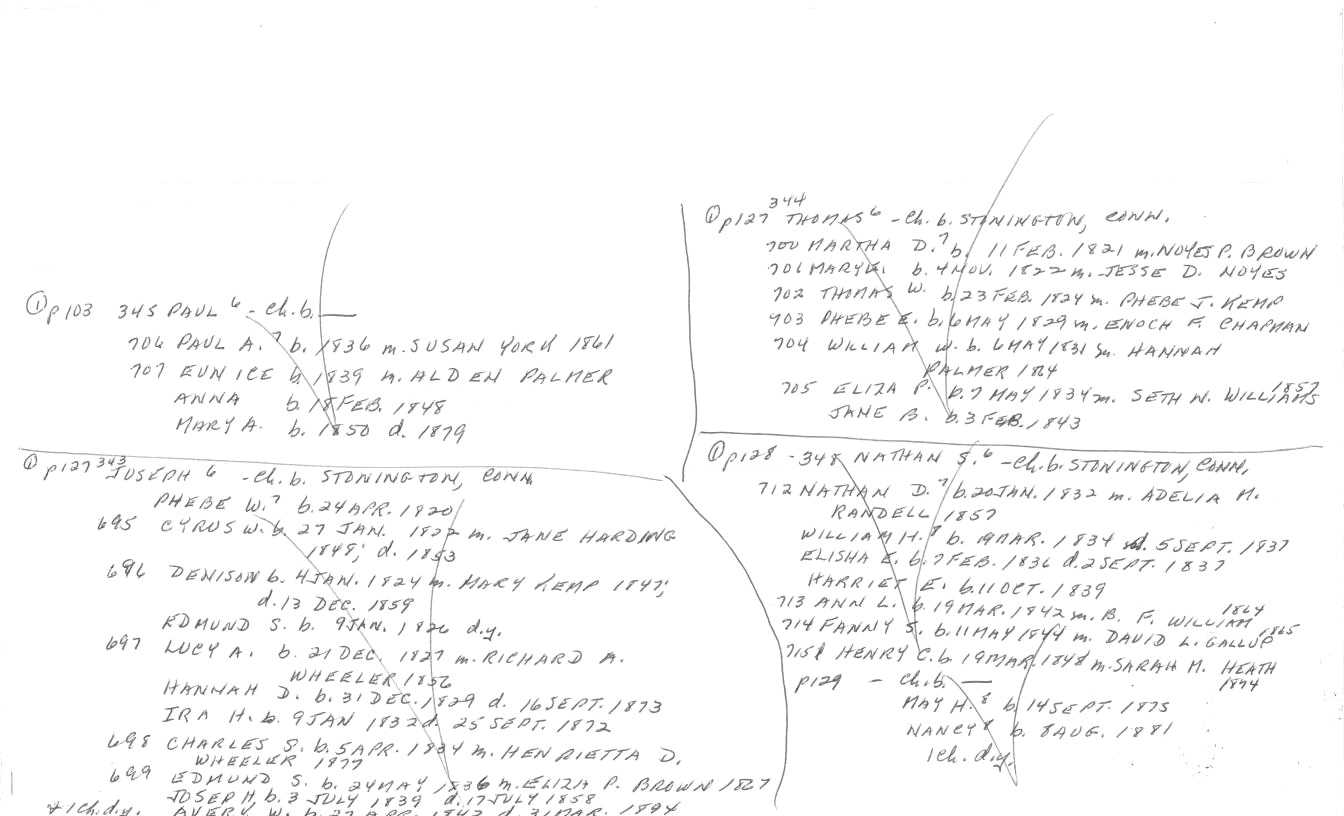 ① p103 345 PAUL⁶ - Ch. b. —
706 PAUL A.⁷ b. 1836 m. SUSAN YORK 1861
707 EUNICE b. 1839 m. ALDEN PALMER
ANNA b. 18 FEB. 1848
MARY A. b. 1850 d. 1879
① p127 343 JOSEPH⁶ - Ch. b. STONINGTON, CONN.
PHEBE W.⁷ b. 24 APR. 1820
695 CYRUS W. b. 27 JAN. 1822 m. JANE HARDING
1848; d. 1853
696 DENISON b. 4 JAN. 1824 m. MARY KEMP 1847;
d. 13 DEC. 1859
EDMUND S. b. 9 JAN. 1826 d.y.
697 LUCY A. b. 21 DEC. 1827 m. RICHARD A.
WHEELER 1856
HANNAH D. b. 31 DEC. 1829 d. 16 SEPT. 1873
IRA H. b. 9 JAN 1832 d. 25 SEPT. 1872
698 CHARLES S. b. 5 APR. 1834 m. HENRIETTA D.
WHEELER 1877
699 EDMUND S. b. 24 MAY 1836 m. ELIZA P. BROWN
JOSEPH, b. 3 JULY 1839 d. 17 JULY 1858
+ 1 ch. d.y. AVERY W. b. 27 APR. 1842 d. 31 MAR. 1894
① p127 344 THOMAS⁶ - Ch. b. STONINGTON, CONN.
700 MARTHA D.⁷ b. 11 FEB. 1821 m. NOYES P. BROWN
701 MARY b. 4 NOV. 1822 m. JESSE D. NOYES
702 THOMAS W. b. 23 FEB. 1824 m. PHEBE J. KEMP
703 PHEBE E. b. 6 MAY 1829 m. ENOCH F. CHAPMAN
704 WILLIAM W. b. 6 MAY 1831 m. HANNAH
PALMER
705 ELIZA P. b. 7 MAY 1834 m. SETH N. WILLIAMS 1857
JANE B. b. 3 FEB. 1843
① p128 - 348 NATHAN S.⁶ - Ch. b. STONINGTON, CONN.
712 NATHAN D.⁷ b. 20 JAN. 1832 m. ADELIA M.
RANDELL 1857
WILLIAM H.⁸ b. 19 MAR. 1834 d. 5 SEPT. 1837
ELISHA E. b. 7 FEB. 1836 d. 2 SEPT. 1837
HARRIET E. b. 11 OCT. 1839
713 ANN L. b. 19 MAR. 1842 m. B. F. WILLIAM 1864
714 FANNY S. b. 11 MAY 1844 m. DAVID L. GALLUP 1865
715 HENRY C. b. 19 MAR. 1848 m. SARAH M. HEATH
1874
p129 - Ch. b. —
MAY H.⁸ b. 14 SEPT. 1875
NANCY⁸ b. 8 AUG. 1881
1 ch. d.y.